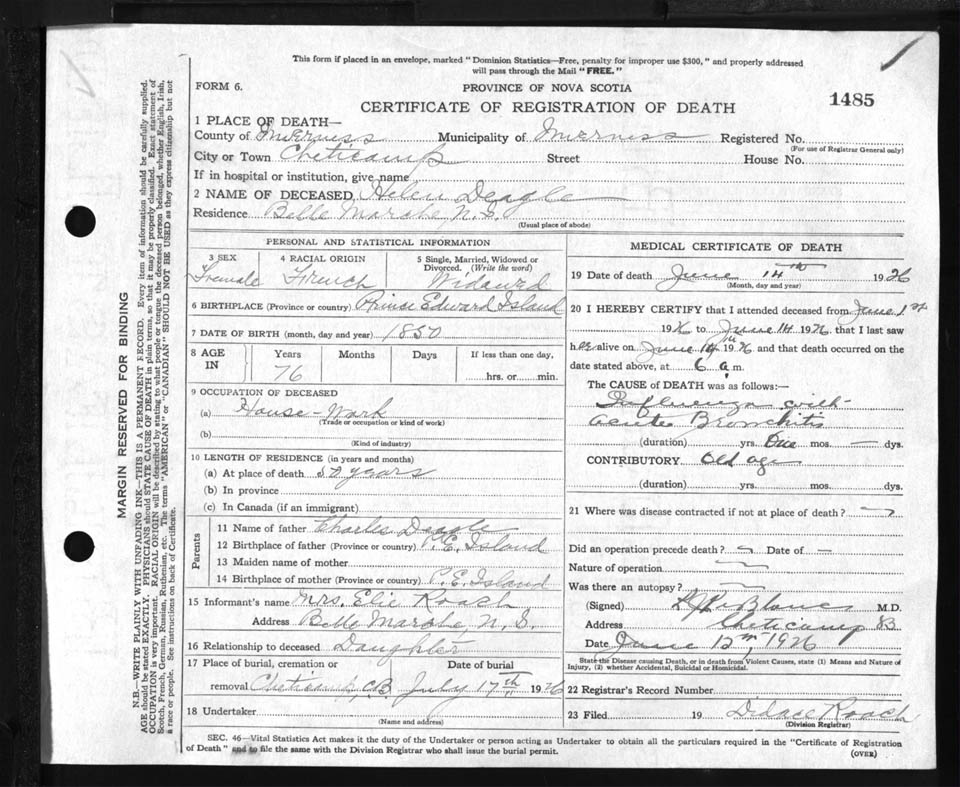 This form if placed in an envelope, marked "Dominion Statistics—Free, penalty for improper use $300," and properly addressed
will pass through the Mail "FREE."
FORM 6.
PROVINCE OF NOVA SCOTIA
CERTIFICATE OF REGISTRATION OF DEATH
1485
1 PLACE OF DEATH—
County of Inverness Municipality of Inverness Registered No.
(For use of Registrar General only)
City or Town Cheticamp Street House No.
If in hospital or institution, give name
2 NAME OF DECEASED Helen Deagle
Residence Belle Marche N.S.
(Usual place of abode)
PERSONAL AND STATISTICAL INFORMATION
3 SEX 4 RACIAL ORIGIN 5 Single, Married, Widowed or Divorced. (Write the word)
Female French Widowed
6 BIRTHPLACE (Province or country) Prince Edward Island
7 DATE OF BIRTH (month, day and year) 1850
8 AGE IN Years Months Days If less than one day,
76 hrs. or min.
9 OCCUPATION OF DECEASED
(a) House-Work
(Trade or occupation or kind of work)
(b)
(Kind of industry)
10 LENGTH OF RESIDENCE (in years and months)
(a) At place of death 50 years
(b) In province
(c) In Canada (if an immigrant)
Parents
11 Name of father Charles Deagle
12 Birthplace of father (Province or country) P.E. Island
13 Maiden name of mother
14 Birthplace of mother (Province or country) P.E. Island
15 Informant's name Mrs. Elie Roach
Address Belle Marche N.S.
16 Relationship to deceased Daughter
17 Place of burial, cremation or Date of burial
removal Cheticamp CB July 17th 1926
18 Undertaker
(Name and address)
MEDICAL CERTIFICATE OF DEATH
19 Date of death June 14th 1926
(Month, day and year)
20 I HEREBY CERTIFY that I attended deceased from June 1st
1926 to June 14 1926, that I last saw
her alive on June 14th 1926 and that death occurred on the
date stated above, at 6 a. m.
The CAUSE of DEATH was as follows:—
Influenza with
acute Bronchitis
(duration) yrs. One mos. — dys.
CONTRIBUTORY Old age
(duration) yrs. mos. dys.
21 Where was disease contracted if not at place of death?
Did an operation precede death? Date of —
Nature of operation
Was there an autopsy?
(Signed) LeBlanc M.D.
Address Cheticamp CB
Date June 1926
State the Disease causing Death, or in death from Violent Causes, state (1) Means and Nature of
Injury, (2) whether Accidental, Suicidal or Homicidal.
22 Registrar's Record Number
23 Filed 19 Roach
(Division Registrar)
SEC. 46—Vital Statistics Act makes it the duty of the Undertaker or person acting as Undertaker to obtain all the particulars required in the "Certificate of Registration
of Death" and to file the same with the Division Registrar who shall issue the burial permit.
(OVER)
MARGIN RESERVED FOR BINDING
N.B.—WRITE PLAINLY WITH UNFADING INK—THIS IS A PERMANENT RECORD. Every item of information should be carefully supplied.
AGE should be stated EXACTLY. PHYSICIANS should STATE CAUSE OF DEATH in plain terms, so that it may be properly classified. Exact statement of
OCCUPATION is very important. RACIAL ORIGIN will be described by stating to what people or tongue the deceased person belonged, whether English, Irish,
Scotch, French, German, Russian, Ruthenian, etc. The terms "AMERICAN" or "CANADIAN" SHOULD NOT BE USED as they express citizenship but not
a race or people. See instructions on back of Certificate.